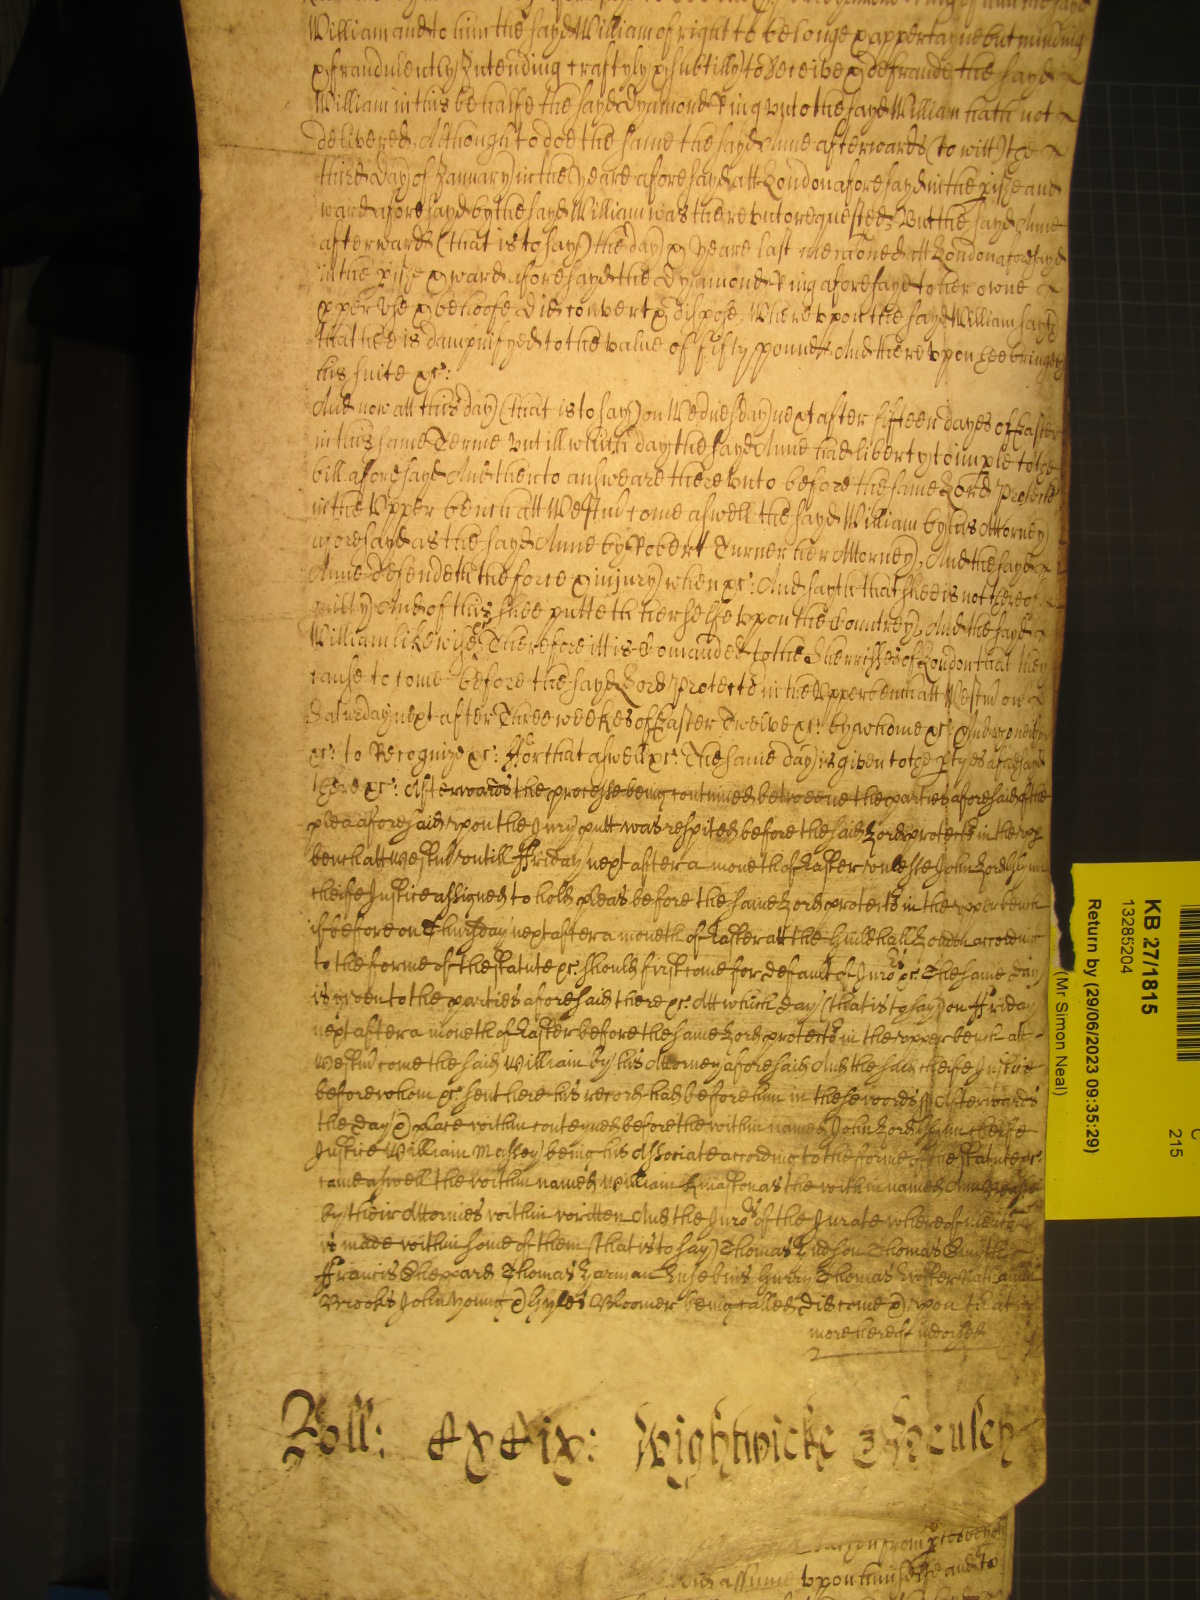 William and to him the sayd William of right to belonge & appertayne but minding
& fraudulently Intending craftyly & subtilly to deceive & defraude the sayd
William in this behalfe the sayd Dyamond Ring unto the sayd William hath not
delivered, Although to doe the same the sayd Anne afterwards (to witt) the
third day of January in the yeare aforesayd att London aforesayd in the pish and
ward aforesayd by the sayd William was thereunto requested, But the sayd Anne
afterwards (that is to say) the day & yeare last menconed att London aforesayd
in the pish & ward aforesayd the Dyamond Ring aforesayd to her owne
pper use & behoofe did convert & dispose, Whereupon the sayd William sayth
that hee is dampnifyed to the value of fifty pounds And thereupon hee bringeth
his suite &c:
And now att this day (that is to say) on Wednesday next after fifteen dayes of Easter
in this same Terme untill which day the sayd Anne had liberty to imple to the
bill aforesayd And then to answeare thereunto before the same Lord Protector
in the Upper bench att Westmr come aswell the sayd William by his Attorney
aforesayd as the sayd Anne by Robert Turner her Attorney, And the sayd
Anne defendeth the force & injury when &c: And sayth that shee is not thereof
guilty And of this shee putteth herselfe upon the Countrey, And the sayd
William likewise, Therefore itt is Comanded to the Sherriffes of London that they
cause to come before the sayd Lord Protector in the Upper bench att Westmr on
Saturday next after Three weekes of Easter Twelve &c: by whome &c: And who neither
&c: to Recognize &c: For that aswell &c: The same day is given to the ptyes aforesayd
there &c: Afterwards the processe being continued betweene the parties aforesaid of the
plea aforesaid upon the Jury putt was respited before the said Lord Protector in the upp
bench att Westmr untill Friday next after a moneth of Easter unlesse John Lord Glynn
cheife Justice assigned to hold pleas before the same Lord Protector in the upper bench
if before on Thursday next after a moneth of Easter att the Guildhall London according
to the forme of the statute &c: should first come for default of Juro^rs &c: The same day
is given to the parties aforesaid there &c: Att which day (that is to say) on Friday
next after a moneth of Easter before the same Lord Protector in the upper bench att
Westmr come the said William by his Attorney aforesaid And the said cheife Justice
before whom &c: sent here his record had before him in these words // Afterwards
the day & place within conteyned before the within named John Lord Glynn cheife
Justice William Massey being his Associate according to the forme of the statute &c:
came aswell the within named William Kinaston as the within named Anne
by their Attornies within written And the Juro^rs of the Jurate whereof mencon
is made within some of them (that is to say) Thomas Hudson Thomas Smyth
Francis Sheppard Thomas Jarman Eusebius Thomas Nathaniell
Brooks John Young & Gyles Bloomer being called did come & upon that
more hereof indorsed
Roll: CXCix: Wightwicke & Heusey
and assume upon himselfe and to
KB 27/1815
13285204
Return by (29/06/2023 09:35:29)
(Mr Simon Neal)
215